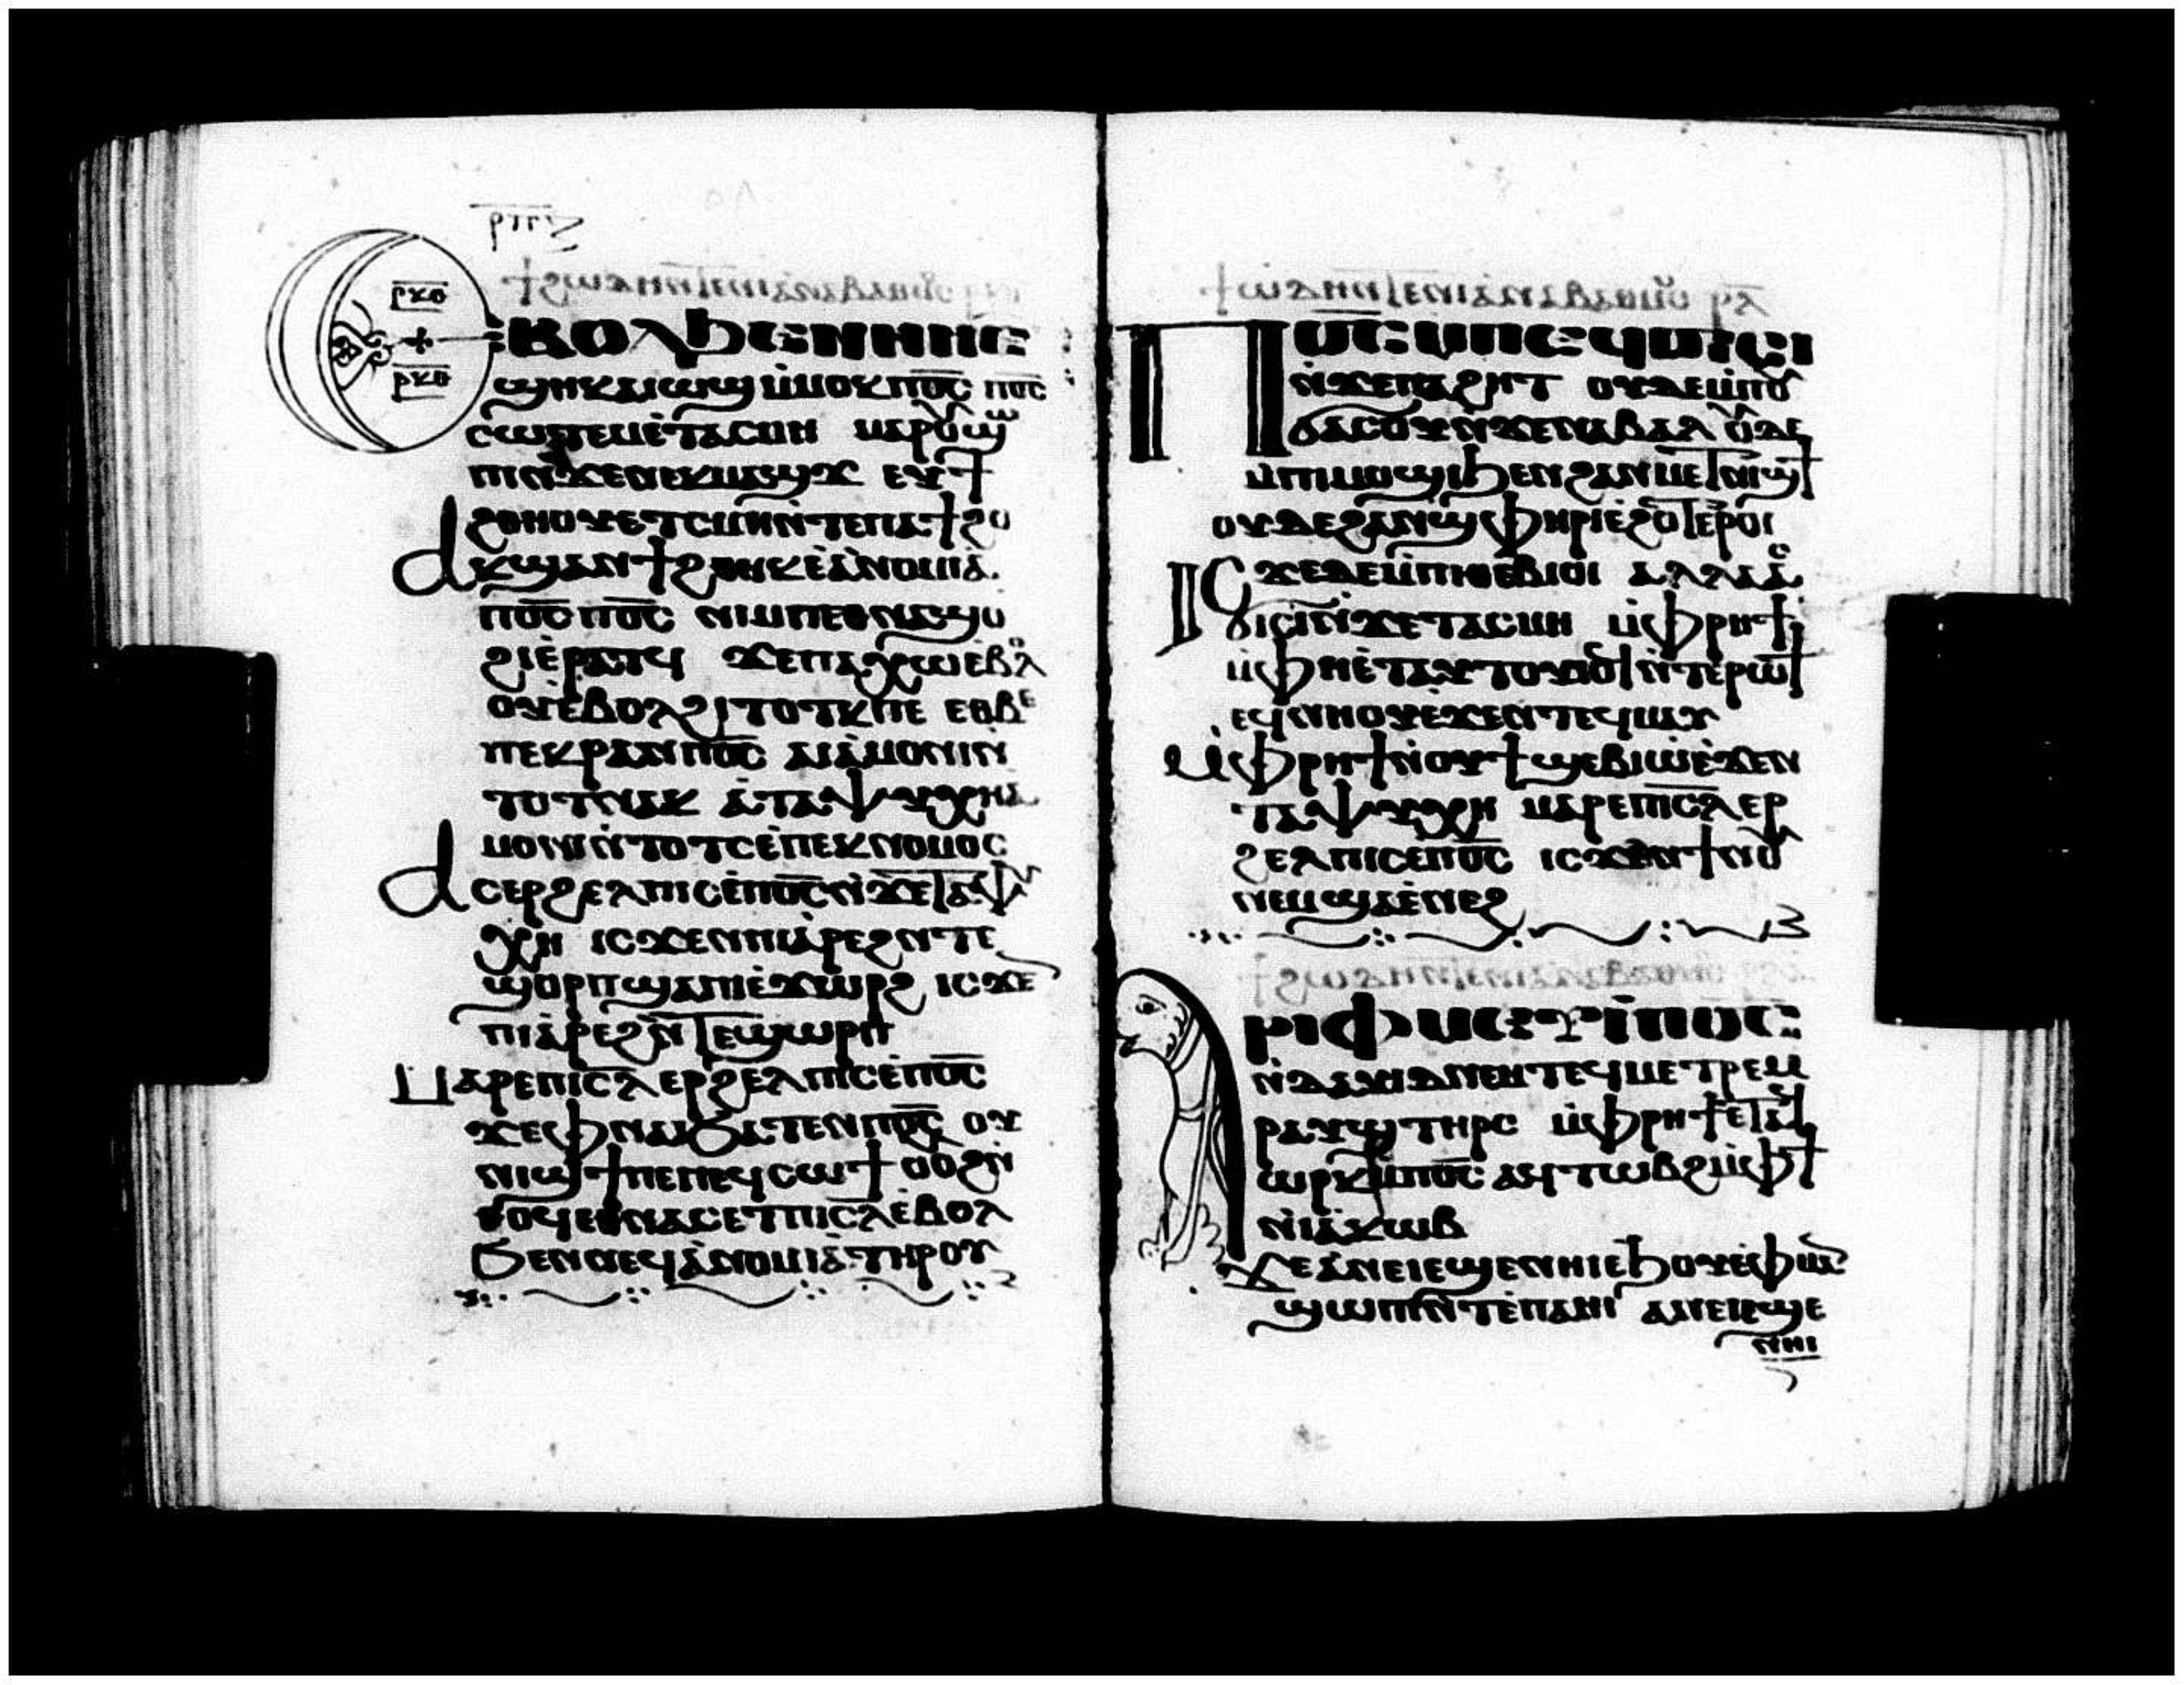 ⲣⲕⲑ
ⲣⲕⲑ
ⲉⲃⲟⲗϧⲉⲛⲛⲏⲉ
ϣⲏⲕⲁⲓⲱϣⲙ̇ⲙⲟⲕⲡⲟ̅ⲥ̅ ⲡⲟ̅ⲥ̅
ⲥⲱⲧⲉⲙⲉ̇ⲧⲁⲥⲙⲏ ⲙⲁⲣⲟⲩϣⲱ
ⲡⲓⲛ̇ϫⲉⲛⲉⲕⲙⲁϣϫ ⲉⲩϯ
ϩⲑⲏⲟⲩⲉ̇ⲧⲥⲙⲏⲛ̇ⲧⲉⲡⲁϯϩⲟ
ⲁⲕϣⲁⲛϯϩⲑⲏⲕⲉ̇ⲁ̇ⲛⲟⲙⲓⲁ̇
ⲡⲟ̅ⲥ̅ ⲡⲟ̅ⲥ̅ ⲛⲓⲙⲡⲉⲑⲛⲁϣⲟ
ϩⲓⲉ̇ⲣⲁⲧϥ ϫⲉⲡⲁⲭⲱⲉⲃⲟⲗ
ⲟⲩⲉ̇ⲃⲟⲗϩⲓⲧⲟⲧⲕⲡⲉ ⲉⲑⲃⲉ
ⲡⲉⲕⲣⲁⲛⲡⲟ̅ⲥ̅ ⲁⲓⲁ̇ⲙⲟⲛⲓⲛ̇
ⲧⲟⲧⲛⲁⲕ ⲁ̇ⲧⲁⲯⲩⲭⲏⲁ̇
ⲙⲟⲛⲓⲛ̇ⲧⲟⲧⲥⲉ̇ⲡⲉⲕⲛⲟⲙⲟⲥ
ⲁⲥⲉⲣϩⲉⲗⲡⲓⲥⲉ̇ⲡⲟ̅ⲥ̅ⲛ̇ϫⲉⲧⲁⲯⲩ
ⲭⲏ ⲓⲥϫⲉⲛⲡⲓⲁ̇ⲣⲉϩⲛ̇ⲧⲉ
ϣⲟⲣⲡϣⲁⲡⲓⲉ̇ϫⲱⲣϩ ⲓⲥϫⲉⲛ
ⲡⲓⲁ̇ⲣⲉϩⲛ̇ⲧⲉϣⲱⲣⲡ
ⲙⲁⲣⲉⲡⲓⲥ̅ⲗ̅ ⲉⲣϩⲉⲗⲡⲓⲥⲉ̇ⲡⲟ̅ⲥ̅
ϫⲉⲫⲛⲁⲓϧⲁⲧⲉⲛⲡⲟ̅ⲥ̅ ⲟⲩ
ⲛⲓϣϯⲡⲉⲡⲉϥⲥⲱϯ ⲟⲟϩⲛ̇
ⲑⲟϥⲉⲑⲛⲁⲥⲉⲧⲡⲓⲥ̅ⲗ̅ⲉ̇ⲃⲟⲗ
ϧⲉⲛⲛⲉϥⲁ̇ⲛⲟⲙⲓⲁ̇ⲧⲏⲣⲟⲩ
ⲡⲟ̅ⲥ̅ⲙ̇ⲡⲉϥϭⲓⲥⲓ
ⲛ̇ϫⲉⲡⲁϩⲏⲧ ⲟⲩⲇⲉⲙ̇ⲡⲟⲩ
ϭⲁⲥⲟⲩⲛ̇ϫⲉⲛⲁⲃⲁⲗ ⲟⲩⲇⲉ
ⲙ̇ⲡⲓⲙⲟϣⲓϧⲉⲛϩⲁⲛⲙⲉⲧⲛⲓϣϯ
ⲟⲩⲇⲉϩⲁⲛϣⲫⲏⲣⲓⲉ̇ϩⲟⲧⲉⲣⲟⲓ
ⲓⲥϫⲉⲇⲉⲙ̇ⲡⲓⲑⲉⲃⲓⲟⲓ ⲁⲗⲗⲁⲁ̇
ϭⲓⲥⲓⲛ̇ϫⲉⲧⲁⲥⲙⲏ ⲙ̇ⲫⲣⲏϯ
ⲙ̇ⲫⲏⲉ̇ⲧⲁⲩⲧⲟⲩⲓⲟϥ ⲛ̇ⲧⲉⲣⲱϯ
ⲉϥⲛⲏⲟⲩⲉ̇ϫⲉⲛⲧⲉϥⲙⲁⲩ
ⲙ̇ⲫⲣⲏϯⲛ̇ⲟⲩϯϣⲉⲃⲓⲱ̇ⲉ̇ϫⲉⲛ
ⲧⲁⲯⲩⲭⲏ ⲙⲁⲣⲉⲡⲓⲥ̅ⲗ̅ ⲉⲣ
ϩⲉⲗⲡⲓⲥⲉ̇ⲡⲟ̅ⲥ̅ ⲓⲥϫⲉⲛϯⲛⲟⲩ
ⲛⲉⲙϣⲁⲉ̇ⲛⲉϩ
ⲁⲣⲓⲫⲙⲉⲩⲓ̇ⲡⲟ̅ⲥ̅
ⲛ̇ⲇⲁⲩⲓⲇⲛⲉⲙⲧⲉϥⲙⲉⲧⲣⲉⲙ
ⲣⲁⲩϣⲧⲏⲣⲥ ⲙ̇ⲫⲣⲏϯⲉⲧⲁϥ
ⲱⲣⲕⲙ̇ⲡⲟ̅ⲥ̅ ⲁϥⲧⲱⲃϩⲙ̇ⲫϯ
ⲛ̇ⲓⲁⲕⲱⲃ
ϫⲉⲁ̇ⲛⲉⲓⲉϣⲉⲛⲏⲓⲉ̇ϧⲟⲩⲛⲉ̇ⲫⲙⲁⲛ̇
ϣⲱⲡⲓⲛ̇ⲧⲉⲡⲁⲏⲓ ⲁⲛⲉⲓⲉϣⲉ
ⲛⲏⲓ